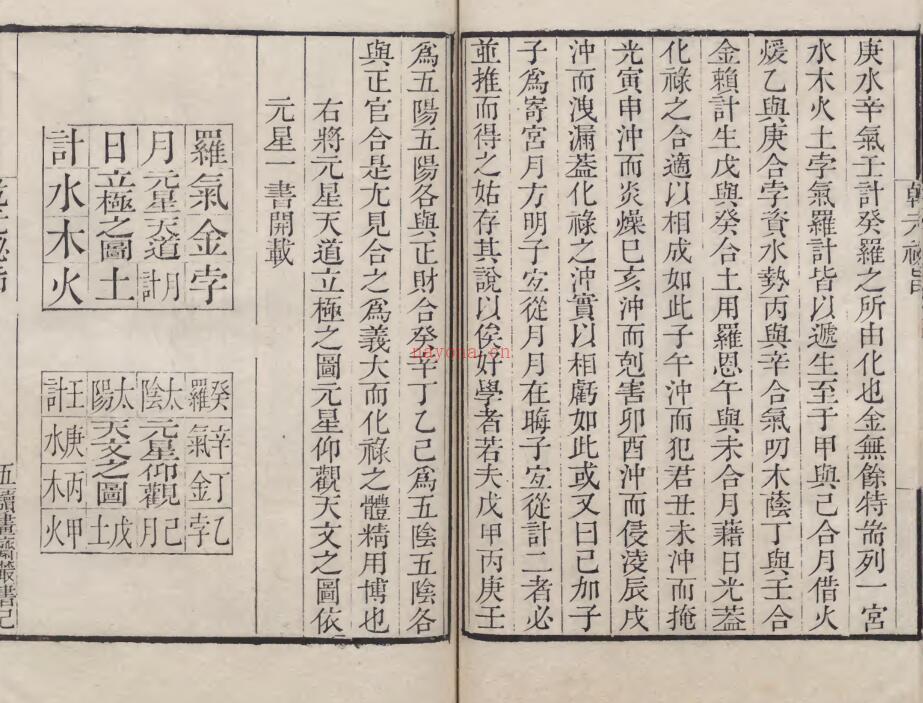 庚水辛氣壬計癸羅之所由化也金無餘特耑列一宮
水木火土孛氣羅計皆以遞生至于甲與己合月借火
煖乙與庚合孛資水勢丙與辛合氣叨木蔭丁與壬合
金賴計生戊與癸合土用羅恩午與未合月藉日光葢
化祿之合適以相成如此子午沖而犯君丑未沖而掩
光寅申沖而炎燥巳亥沖而剋害卯酉沖而侵淩辰戌
沖而洩漏葢化祿之沖實以相虧如此或又曰己加子
子爲寄宮月方明子宐從月月在晦子宐從計二者必
並推而得之姑存其說以俟好學者若夫戊甲丙庚壬
爲五陽五陽各與正財合癸辛丁乙己爲五陰五陰各
與正官合是尤見合之爲義大而化祿之體精用博也
右將元星天道立極之圖元星仰觀天文之圖依
元星一書開載
羅氣金孛
月元星天道月計
日立極之圖土
計水木火
癸羅辛氣丁金乙孛
太陰元星仰觀己月
太陽天文之圖戊土
壬計庚水丙木甲火
五
nayona.cn